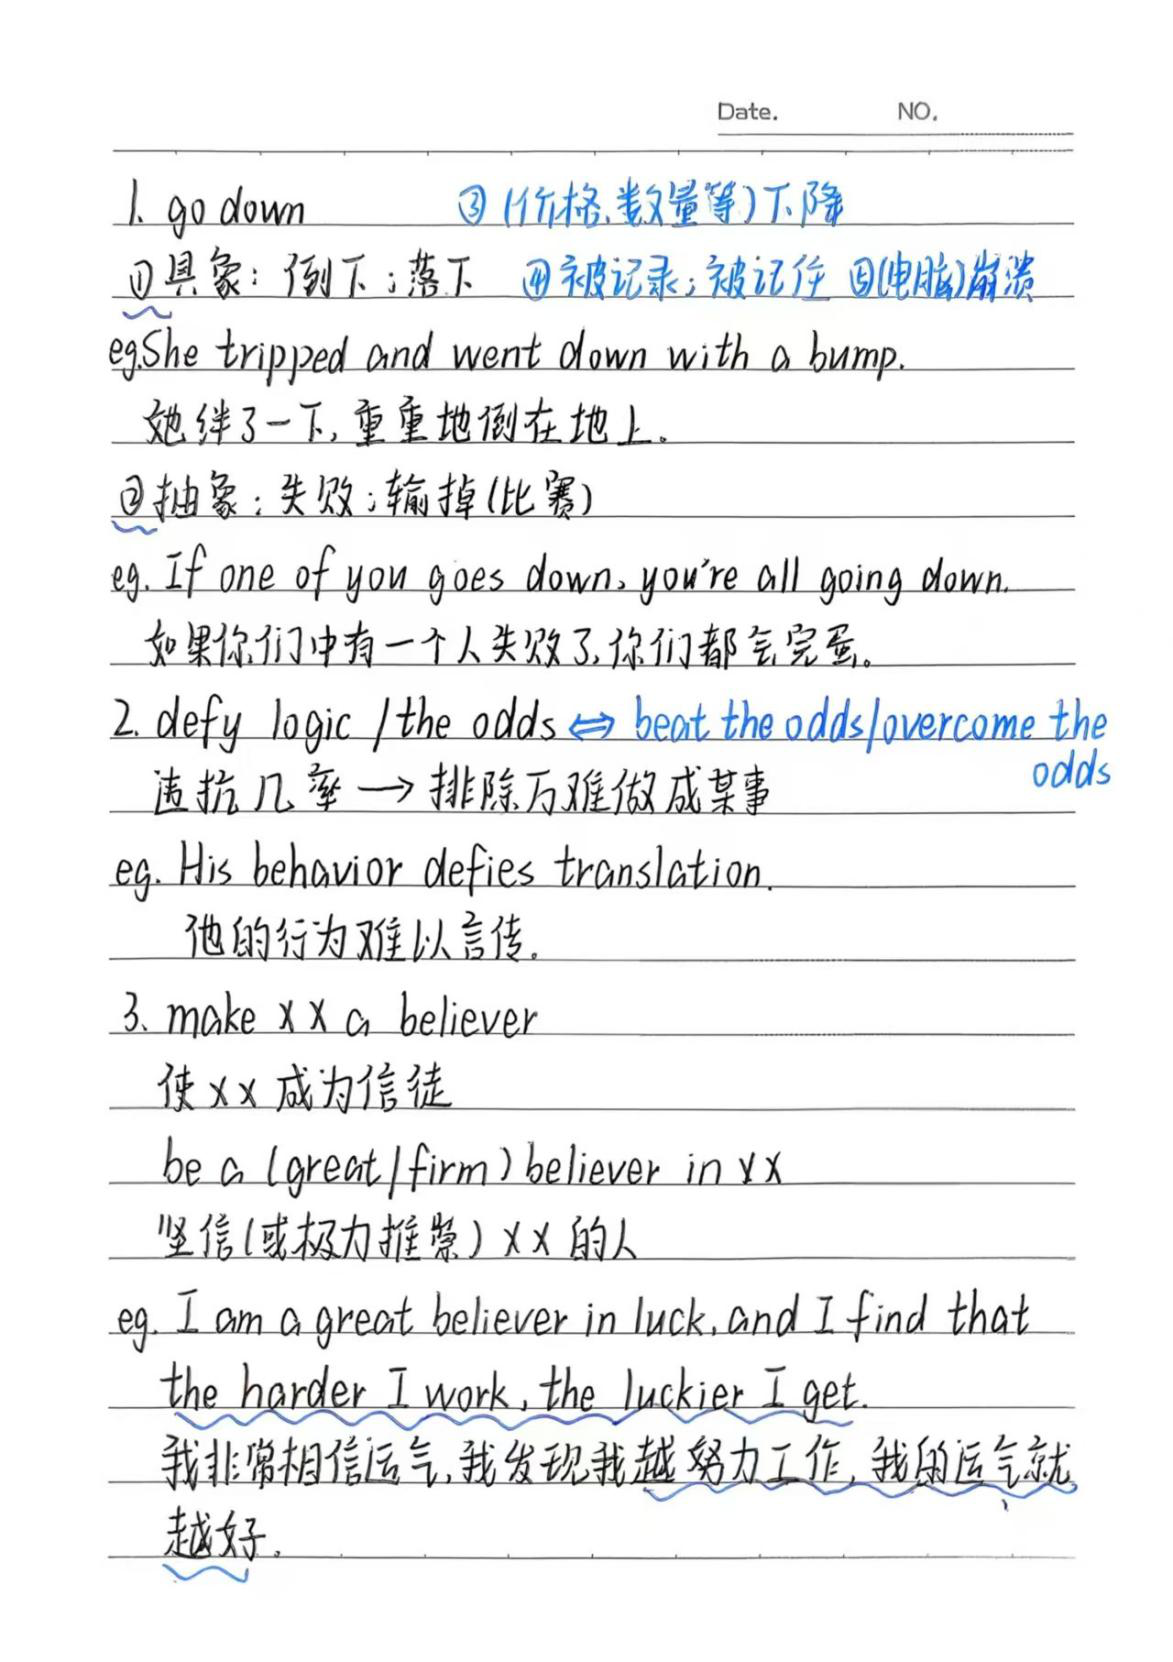 Date. NO.
1. go down ③(价格、数量等)下降
①具象：倒下；落下 ④被记录；被记住 ⑤(电脑)崩溃
eg.She tripped and went down with a bump.
她绊了一下，重重地倒在地上。
②抽象：失败；输掉(比赛)
eg. If one of you goes down, you're all going down.
如果你们中有一个人失败了，你们都会完蛋。
2. defy logic /the odds ⇔ beat the odds/overcome the
odds
违抗几率→排除万难做成某事
eg. His behavior defies translation.
他的行为难以言传。
3. make XX a believer
使XX成为信徒
be a (great/firm) believer in XX
坚信(或极力推崇)XX的人
eg. I am a great believer in luck, and I find that
the harder I work, the luckier I get.
我非常相信运气，我发现我越努力工作，我的运气就
越好。